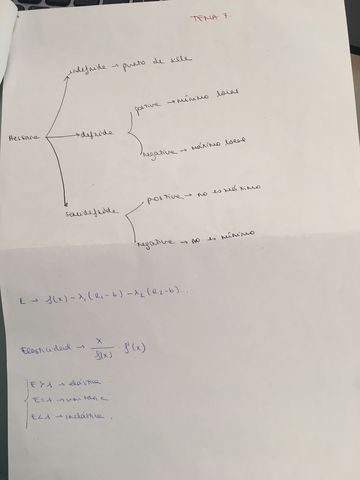 TEMA 7.
indefinida → punto de silla
positiva → mínimo local
Hessiana → definida
negativa → máximo local
positiva → no es máximo
semidefinida
negativa → no es mínimo
L → f(x) - λ₁(R₁-b) - λ₂(R₂-b)...
Elasticidad → x/f(x) f'(x)
E>1 → elástica
E=1 → unitaria
E<1 → inelástica.